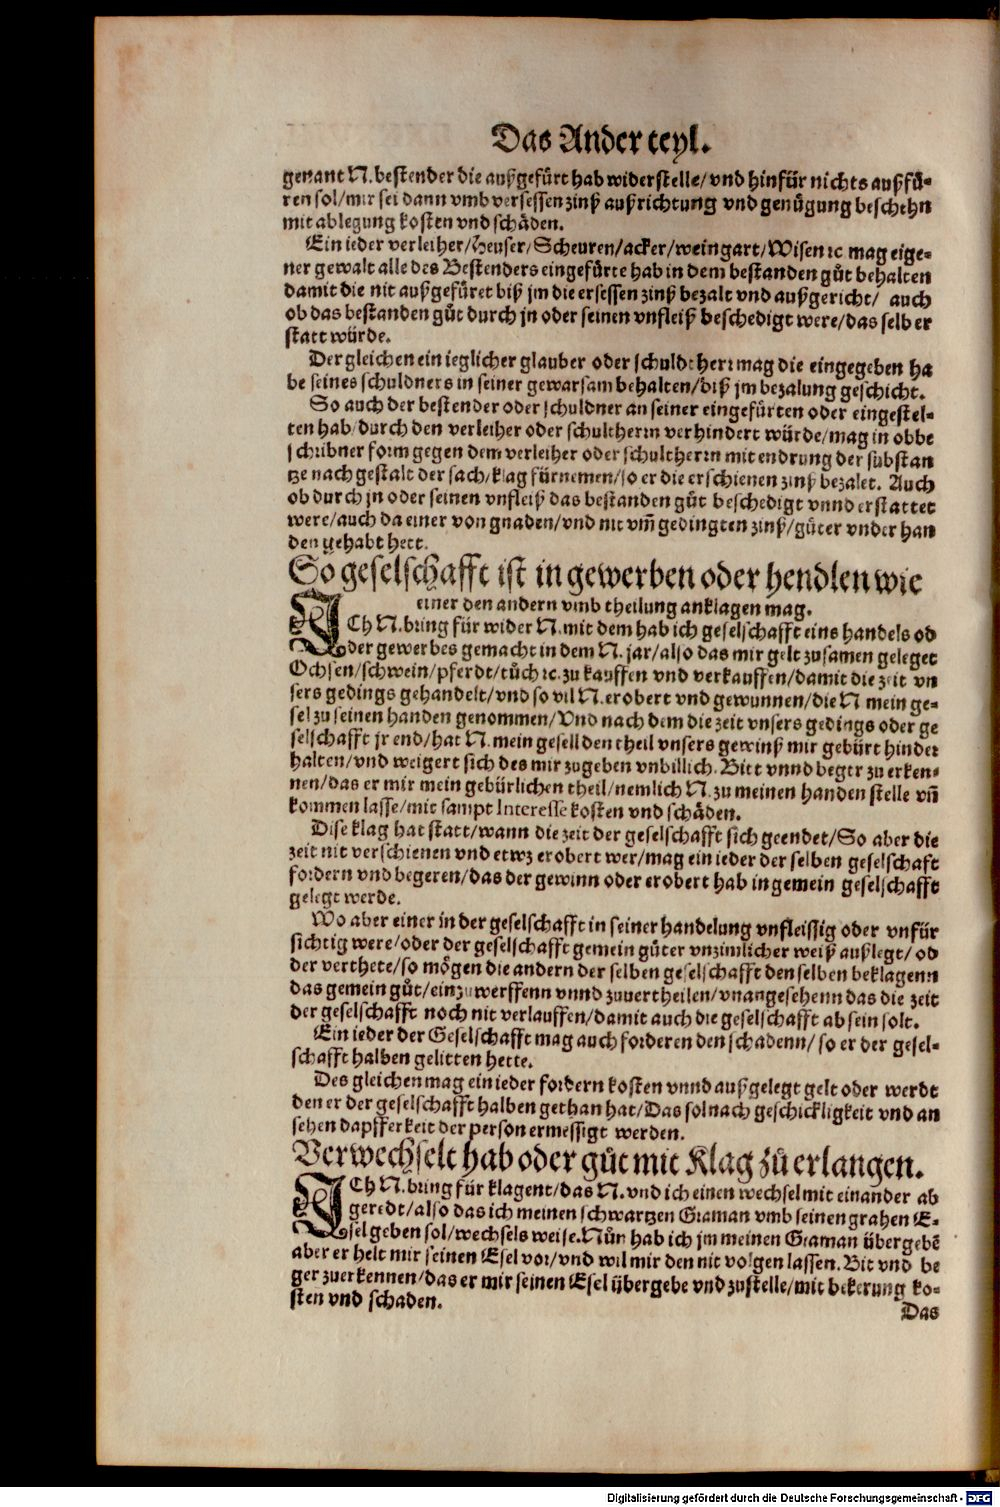 Das Ander teyl.
genant N. bestender die außgefürt hab widerstelle/ vnd hinfür nichts außfü-
ren sol/mir sei dann vmb versessen zinß außrichtung vnd genůgung beschehn
mit ablegung kosten vnd schäden.
Ein ieder verleiher/Heuser/Scheuren/acker/weingart/Wisen ꝛc mag eige-
ner gewalt alle des Bestenders eingefürte hab in dem bestanden gůt behalten
damit die nit außgefüret biß jm die ersessen zinß bezalt vnd außgericht/ auch
ob das bestanden gůt durch jn oder seinen vnfleiß beschedigt were/das selb er
statt würde.
Der gleichen ein ieglicher glauber oder schuldt herr mag die eingegeben ha
be seines schuldners in seiner gewarsam behalten/biß jm bezalung geschicht.
So auch der bestender oder schuldner an seiner eingefürten oder eingestel-
ten hab/durch den verleiher oder schultherrn verhindert würde/mag in obbe
schribner form gegen dem verleiher oder schultherrn mit endrung der substan
tze nach gestalt der sach/klag fürnemen/so er die erschienen zinß bezalet. Auch
ob durch jn oder seinen vnfleiß das bestanden gůt beschedigt vnnd erstattet
were/auch da einer von gnaden/vnd nit vm̃ gedingten zinß/güter vnder han
den gehabt hett.
So geselschafft ist in gewerben oder hendlen wie
einer den andern vmb theilung anklagen mag.
ICh N. bring für wider N. mit dem hab ich geselschafft eins handels od
der gewerbes gemacht in dem N. jar/also das mir gelt zusamen geleget
Ochsen/schwein/pferdt/tůch ꝛc. zu kauffen vnd verkauffen/damit die zeit vn
sers gedings gehandelt/vnd so vil N. erobert vnd gewunnen/die N mein ge-
sel zu seinen handen genommen/Vnd nach dem die zeit vnsers gedings oder ge
selschafft jr end/hat N. mein gesell den theil vnsers gewinß mir gebürt hinder
halten/vnd weigert sich des mir zugeben vnbillich. Bitt vnnd beger zu erken-
nen/das er mir mein gebürlichen theil/nemlich N. zu meinen handen stelle vñ
kommen lasse/mit sampt Interesse kosten vnd schäden.
Dise klag hat statt/wann die zeit der geselschafft sich geendet/So aber die
zeit nit verschienen vnd etwz erobert wer/mag ein ieder der selben geselschaft
fordern vnd begeren/das der gewinn oder erobert hab in gemein geselschafft
gelegt werde.
Wo aber einer in der geselschafft in seiner handelung vnfleissig oder vnfür
sichtig were/oder der geselschafft gemein güter vnzimlicher weiß außlegt/ od
der verthete/so mögen die andern der selben geselschafft den selben beklagenn
das gemein gůt/einzuwerffenn vnnd zuuertheilen/vnangesehenn das die zeit
der geselschafft noch nit verlauffen/damit auch die geselschafft ab sein solt.
Ein ieder der Geselschafft mag auch forderen den schadenn/ so er der gesel-
schafft halben gelitten hette.
Des gleichen mag ein ieder fordern kosten vnnd außgelegt gelt oder werdt
den er der geselschafft halben gethan hat/Das sol nach geschickligkeit vnd an
sehen dapfferkeit der person ermessigt werden.
Verwechselt hab oder gůt mit Klag zů erlangen.
ICh N. bring für klagent/das N. vnd ich einen wechsel mit einander ab
geredt/also das ich meinen schwartzen Graman vmb seinen grahen E-
sel geben sol/wechsels weise. Nůn hab ich jm meinen Graman übergebẽ
aber er helt mir seinen Esel vor/vnd wil mir den nit volgen lassen. Bit vnd be
ger zuerkennen/das er mir seinen Esel übergebe vnd zustelle/mit bekerung ko-
sten vnd schaden.
Das
Digitalisierung gefördert durch die Deutsche Forschungsgemeinschaft - DFG